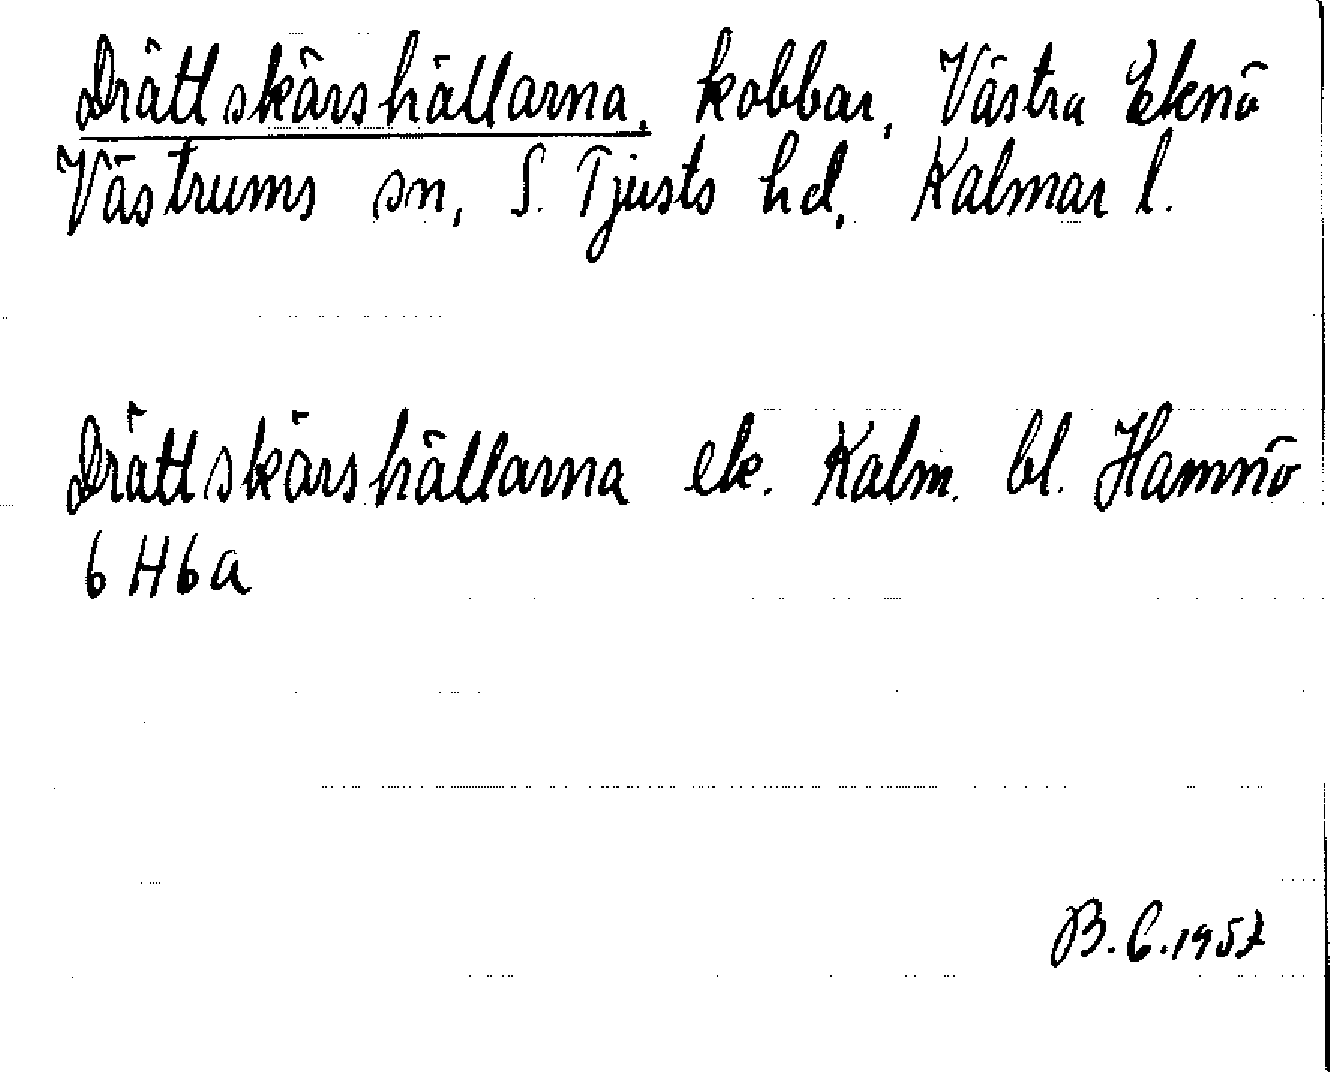 Drättskärshällarna, kobbar, Västra Eknö
Västrums sn, S. Tjusts hd, Kalmar l.
Drättskärshällarna ek. Kalm. bl. Hamnö
6 H 6 a
B. C. 1957